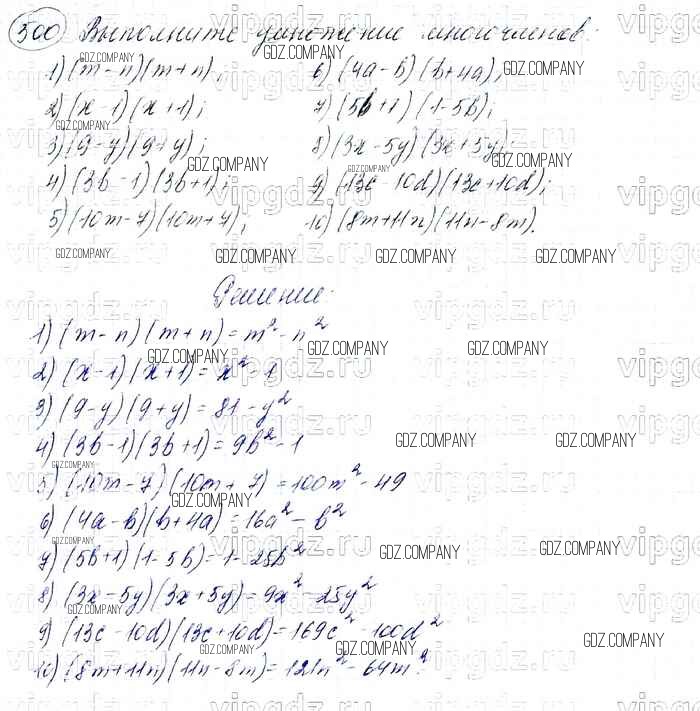 500 Выполните умножение многочленов:
1) (m - n)(m + n);
2) (x - 1)(x + 1);
3) (9 - y)(9 + y);
4) (3b - 1)(3b + 1);
5) (10m - 7)(10m + 7);
6) (4a - b)(b + 4a);
7) (5b + 1)(1 - 5b);
8) (3x - 5y)(3x + 5y);
9) (13c - 10d)(13c + 10d);
10) (8m + 11n)(11n - 8m).
Решение:
1) (m - n)(m + n) = m² - n²
2) (x - 1)(x + 1) = x² - 1
3) (9 - y)(9 + y) = 81 - y²
4) (3b - 1)(3b + 1) = 9b² - 1
5) (10m - 7)(10m + 7) = 100m² - 49
6) (4a - b)(b + 4a) = 16a² - b²
7) (5b + 1)(1 - 5b) = 1 - 25b²
8) (3x - 5y)(3x + 5y) = 9x² - 25y²
9) (13c - 10d)(13c + 10d) = 169c² - 100d²
10) (8m + 11n)(11n - 8m) = 121n² - 64m²
GDZ.COMPANY
vipgdz.ru